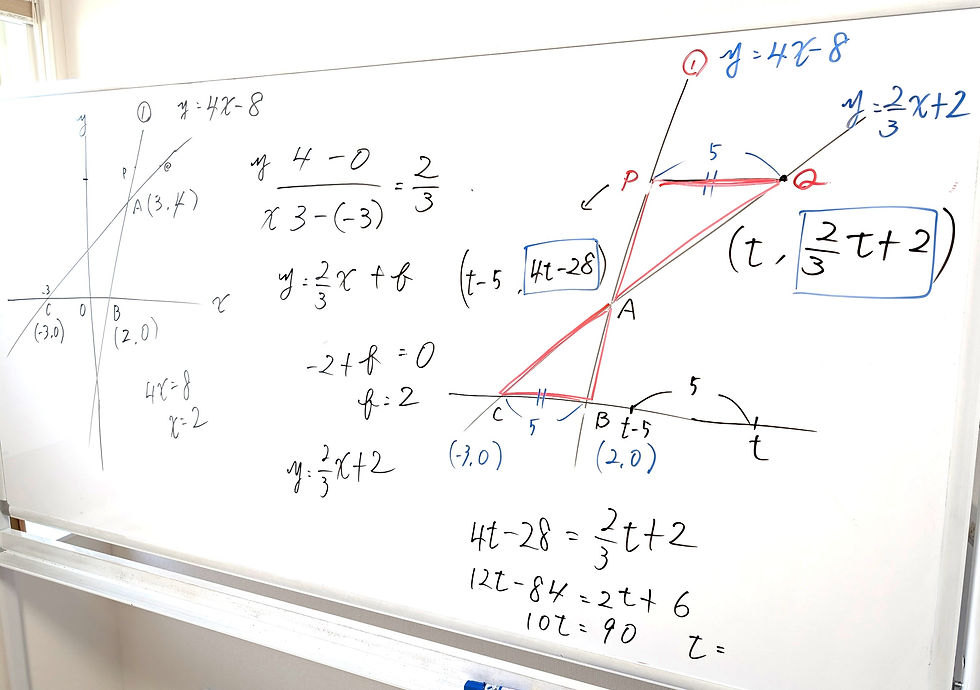 ① y=4x-8
y
P
Q
A(3,4)
-3
C O B x
(-3,0) (2,0)
4x=8
x=2
y 4-0
x 3-(-3)
= 2/3
y=2/3x+b
-2+b=0
b=2
y=2/3x+2
① y=4x-8
y=2/3x+2
5
P Q
(t-5, 4t-28)
(t, 2/3t+2)
A
5
C 5 B t-5 t
(-3,0) (2,0)
4t-28=2/3t+2
12t-84=2t+6
10t=90 t=